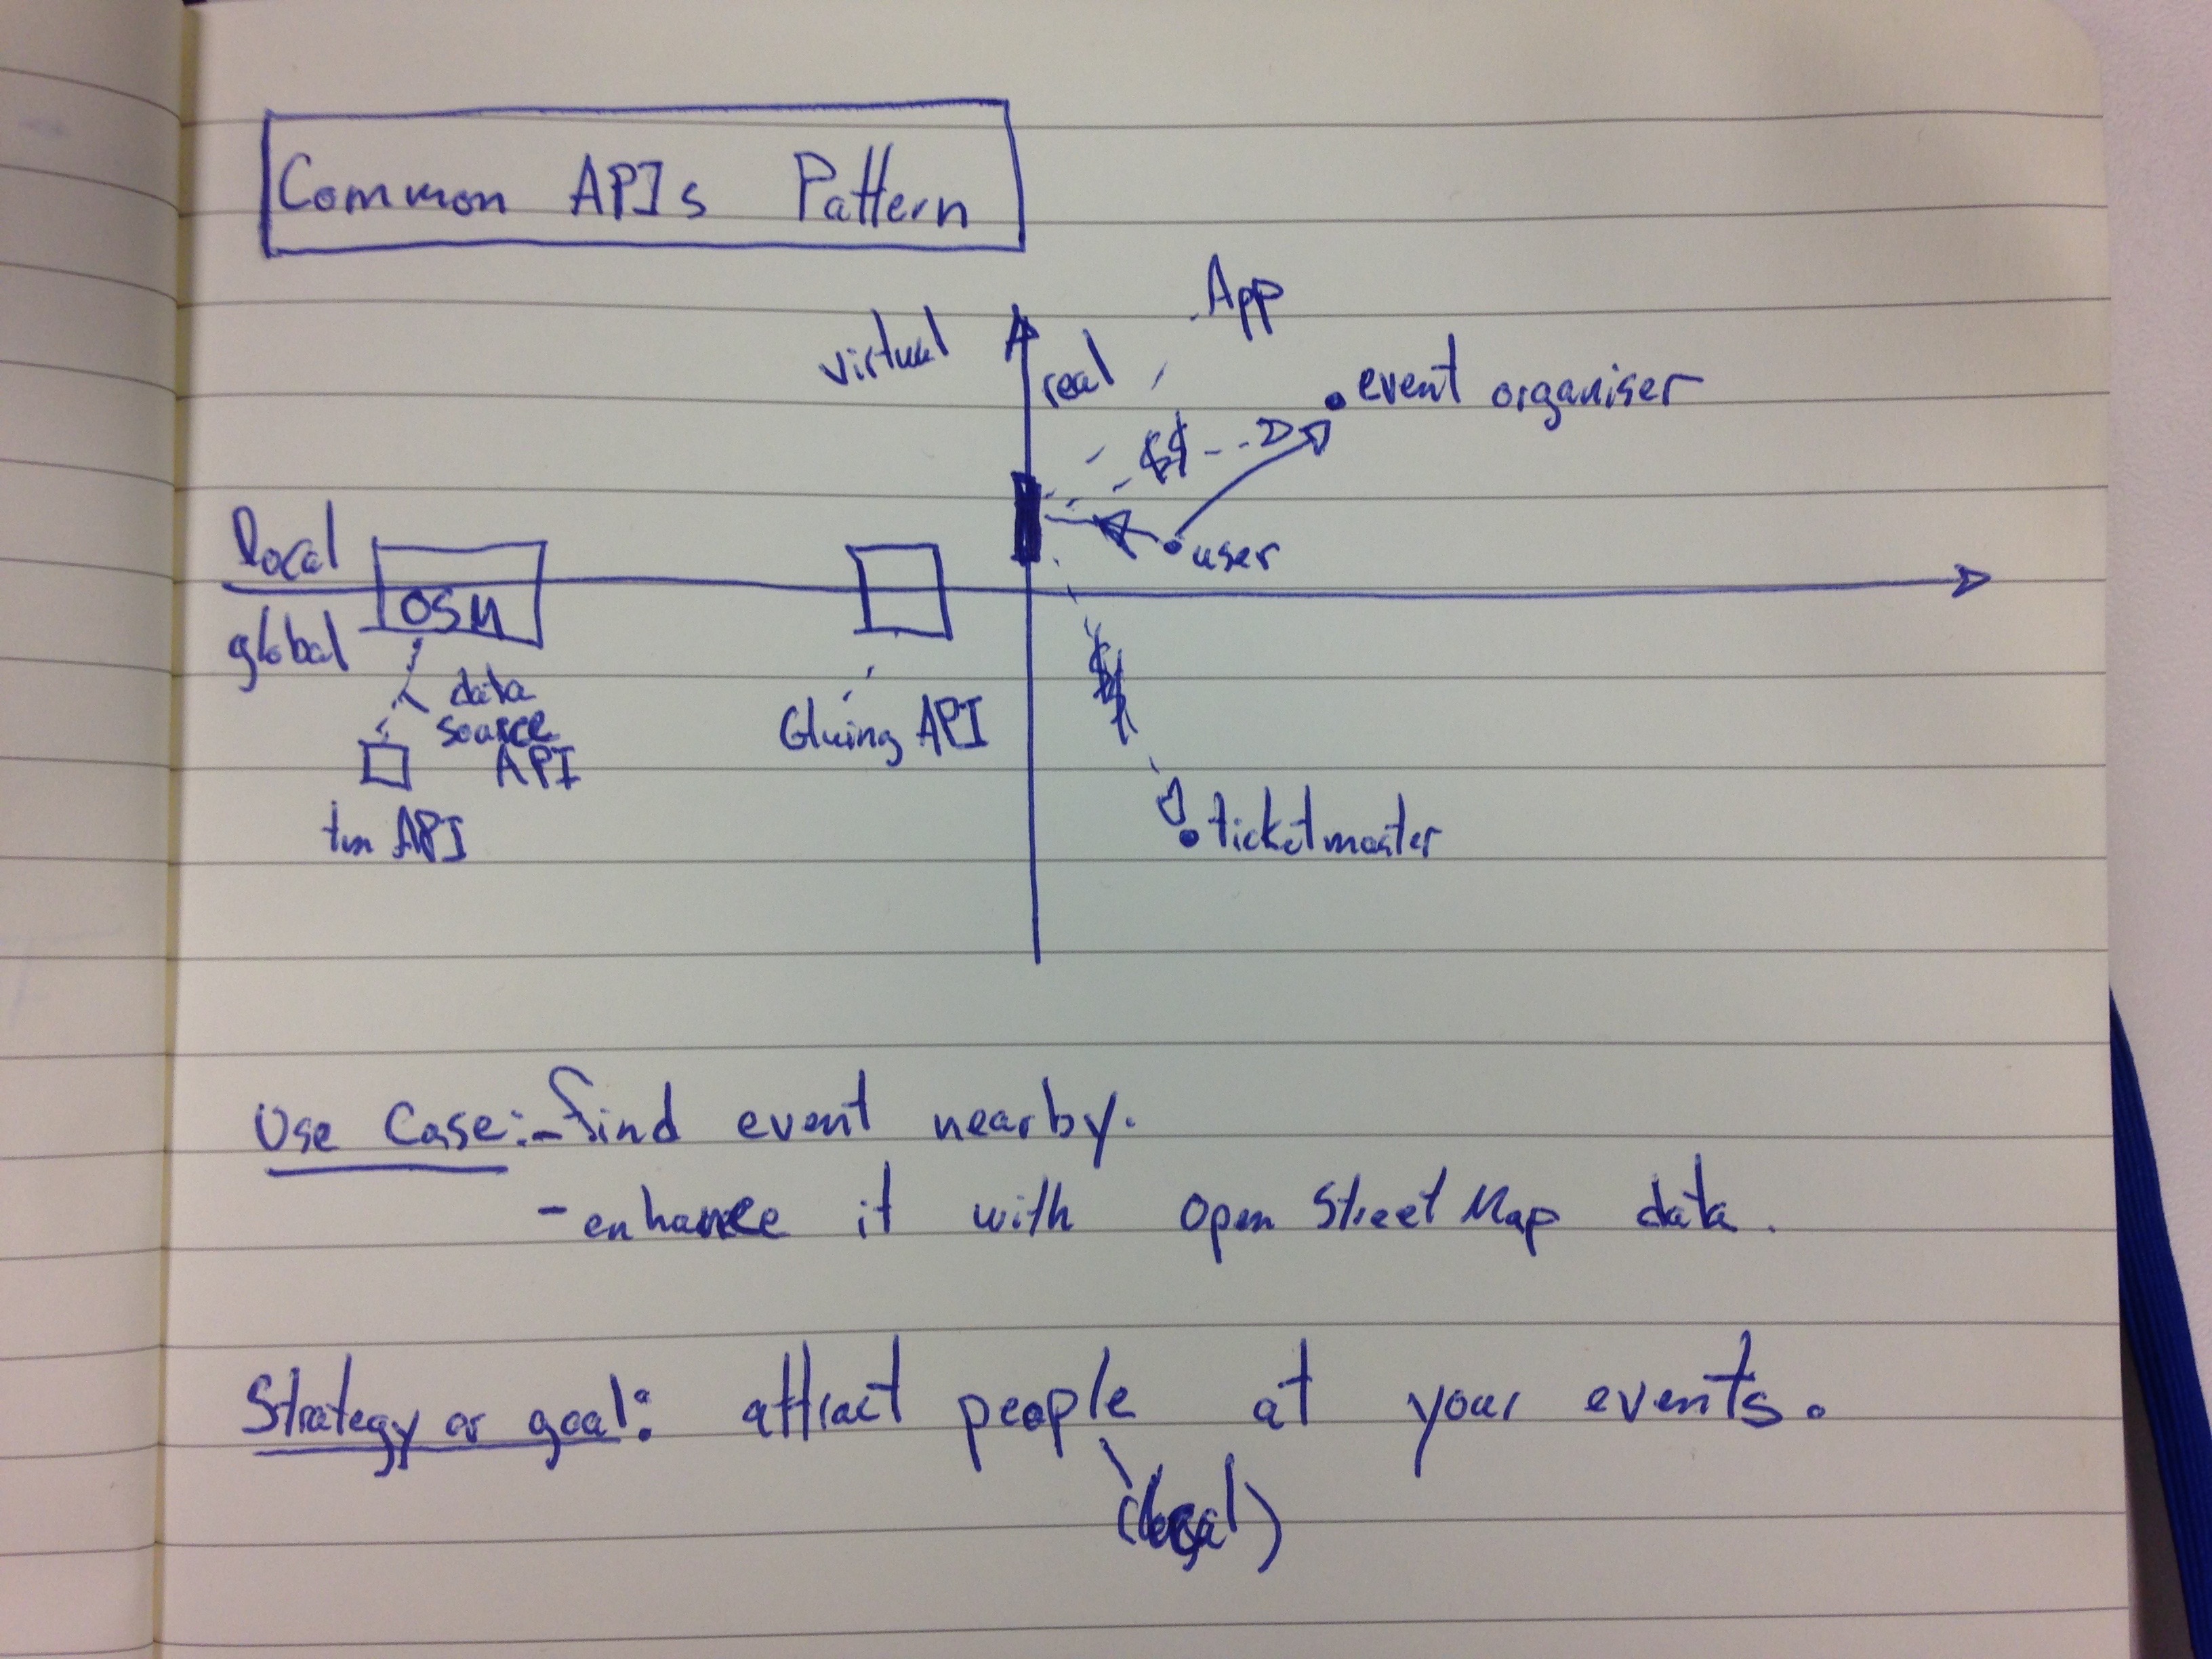 Common APIs Pattern
App
virtual
real
event organiser
$$
local
user
OSM
global
data
source
API
Gluing API
$$
tm API
ticketmaster
Use Case: - find event nearby.
- enhance it with Open Street Map data.
Strategy or goal: attract people at your events.
(local)